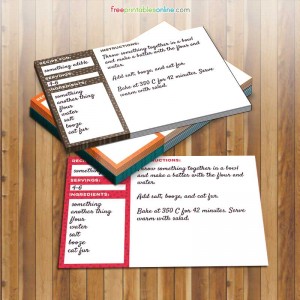 freeprintablesonline.com
RECIPE FOR:
something edible
SERVINGS:
4-6
INGREDIENTS:
something
another thing
flour
water
salt
booze
cat fur
INSTRUCTIONS:
Throw something together in a bowl
and make a batter with the flour and
water.
Add salt, booze, and cat fur.
Bake at 360 C for 42 minutes. Serve
warm with salad.
SERVINGS:
4-6
INGREDIENTS:
something
another thing
flour
water
salt
booze
cat fur
Throw something together in a bowl
and make a batter with the flour and
water.
Add salt, booze, and cat fur.
Bake at 360 C for 42 minutes. Serve
warm with salad.